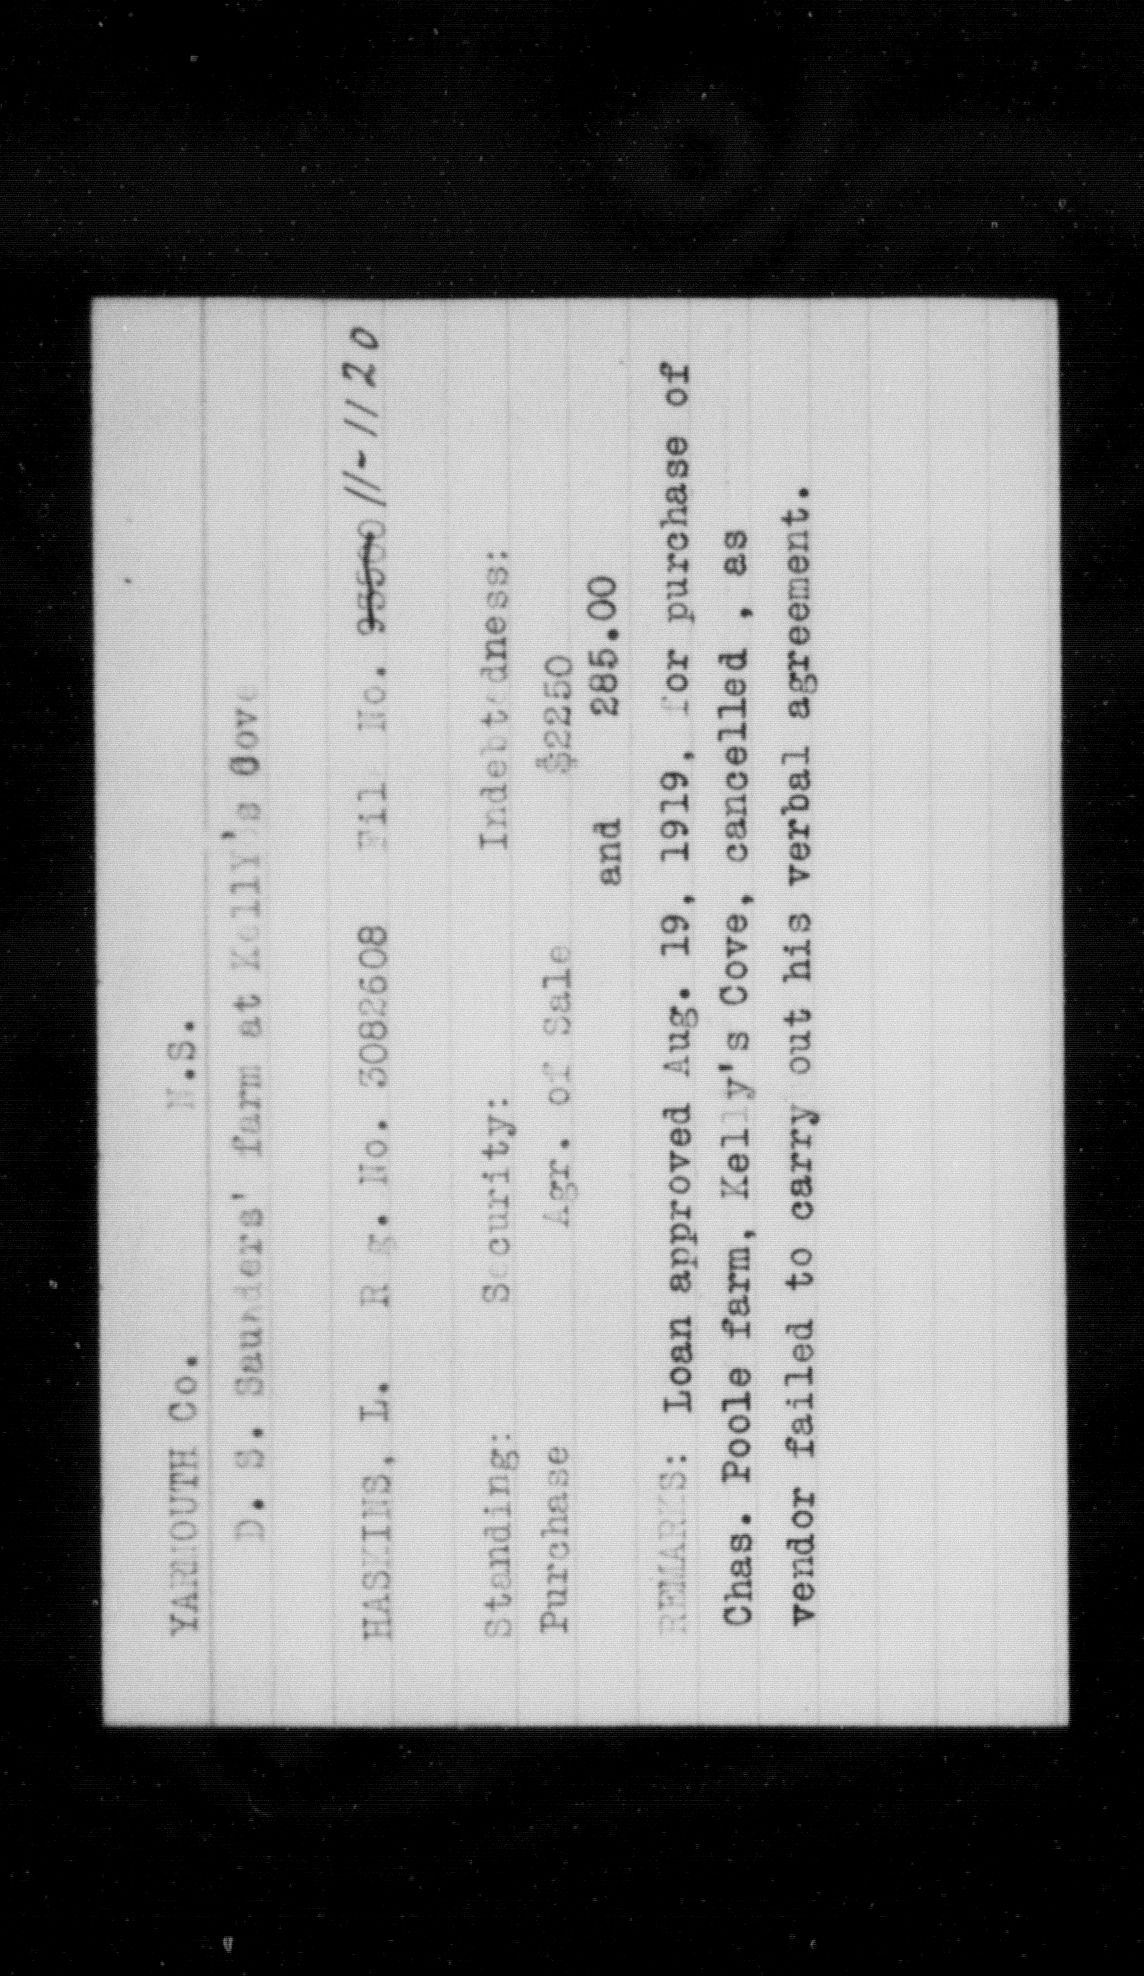 YARMOUTH Co. N.S.
D. S. Saunders' farm at Kelly's Cove
HASKINS, L. Reg. No. 3082608 File No. 11-1120
Standing: Security: Indebtedness:
Purchase Agr. of Sale $2250
and 285.00
REMARKS: Loan approved Aug. 19, 1919, for purchase of
Chas. Poole farm, Kelly's Cove, cancelled , as
vendor failed to carry out his verbal agreement.